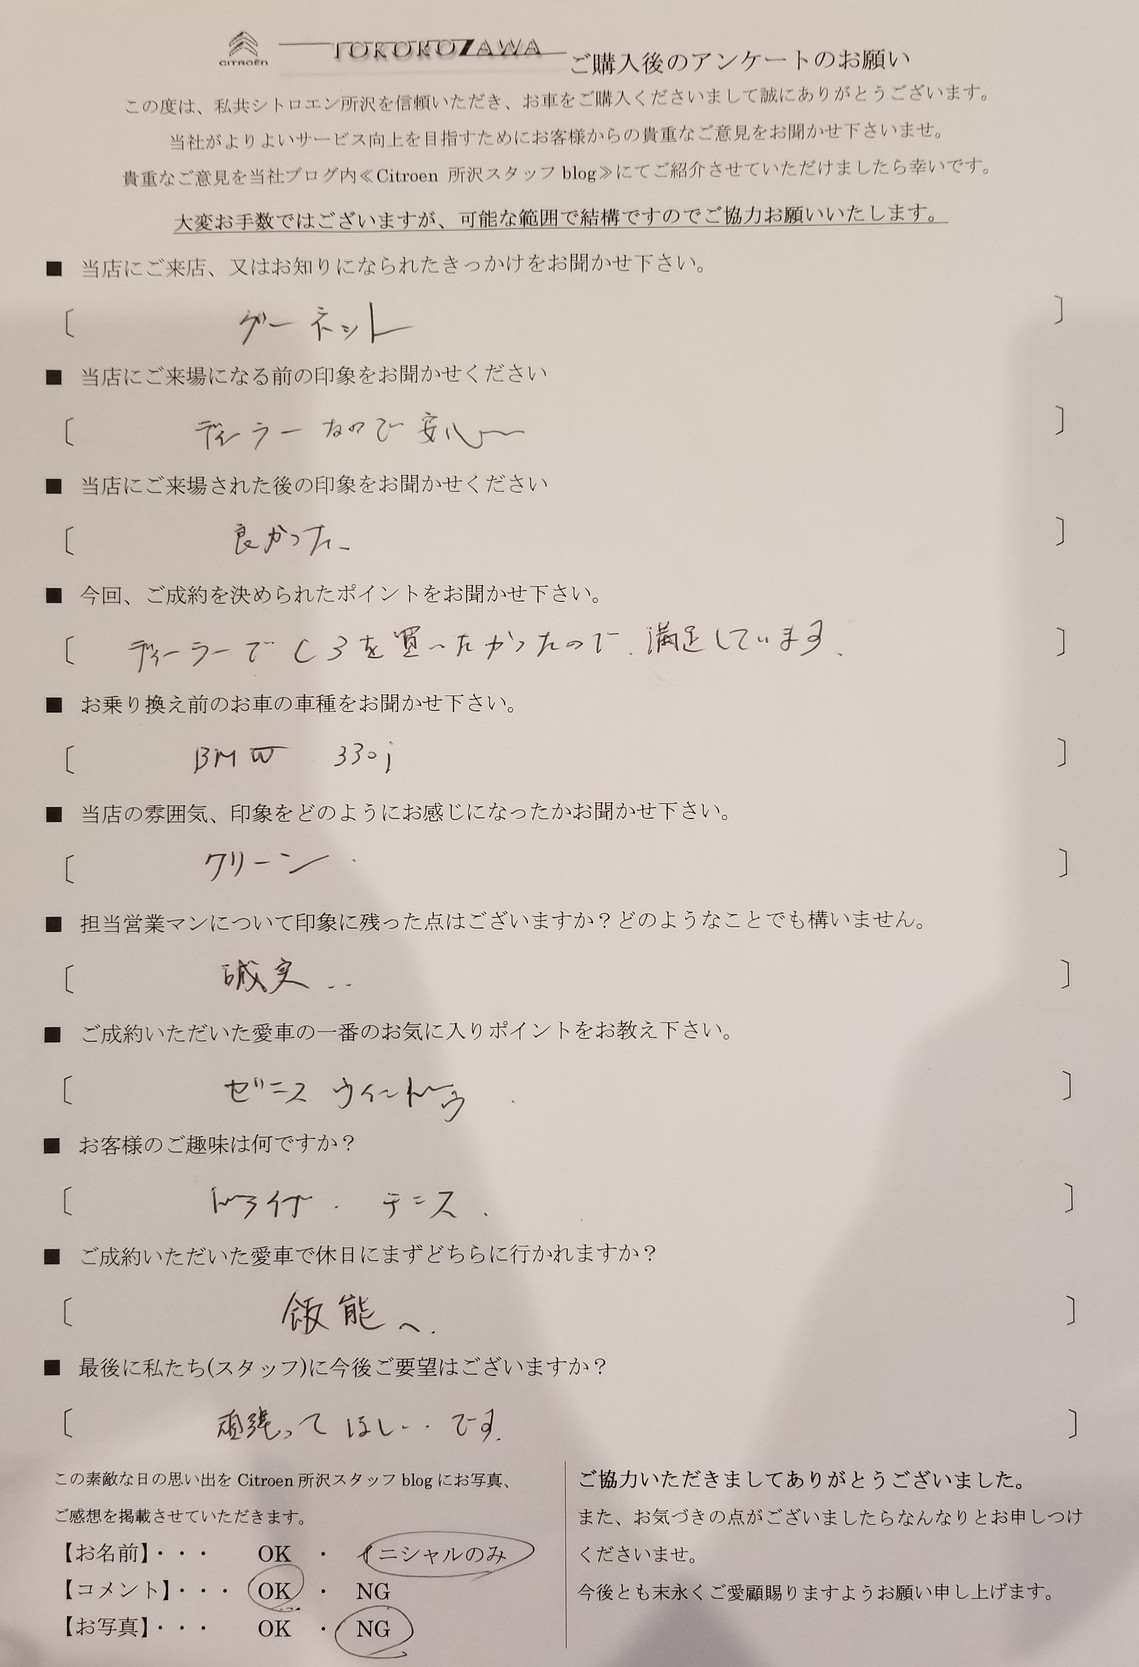 CITROËN
TOKOROZAWA ご購入後のアンケートのお願い
この度は、私共シトロエン所沢を信頼いただき、お車をご購入くださいまして誠にありがとうございます。
当社がよりよいサービス向上を目指すためにお客様からの貴重なご意見をお聞かせ下さいませ。
貴重なご意見を当社ブログ内≪Citroen 所沢スタッフ blog≫にてご紹介させていただけましたら幸いです。
大変お手数ではございますが、可能な範囲で結構ですのでご協力お願いいたします。
■ 当店にご来店、又はお知りになられたきっかけをお聞かせ下さい。
〔 グーネット 〕
■ 当店にご来場になる前の印象をお聞かせください
〔 ディーラーなので安心 〕
■ 当店にご来場された後の印象をお聞かせください
〔 良かった 〕
■ 今回、ご成約を決められたポイントをお聞かせ下さい。
〔 ディーラーでC3を買ったかったので、満足しています. 〕
■ お乗り換え前のお車の車種をお聞かせ下さい。
〔 BMW 330i 〕
■ 当店の雰囲気、印象をどのようにお感じになったかお聞かせ下さい。
〔 クリーン. 〕
■ 担当営業マンについて印象に残った点はございますか？どのようなことでも構いません。
〔 誠実... 〕
■ ご成約いただいた愛車の一番のお気に入りポイントをお教え下さい。
〔 ゼニスウィンドウ. 〕
■ お客様のご趣味は何ですか？
〔 ドライブ. テニス. 〕
■ ご成約いただいた愛車で休日にまずどちらに行かれますか？
〔 飯能へ. 〕
■ 最後に私たち(スタッフ)に今後ご要望はございますか？
〔 頑張ってほしい..です. 〕
この素敵な日の思い出を Citroen 所沢スタッフ blog にお写真、
ご感想を掲載させていただきます。
【お名前】・・・ OK ・ イニシャルのみ
【コメント】・・・ OK ・ NG
【お写真】・・・ OK ・ NG
ご協力いただきましてありがとうございました。
また、お気づきの点がございましたらなんなりとお申しつけ
くださいませ。
今後とも末永くご愛顧賜りますようお願い申し上げます。